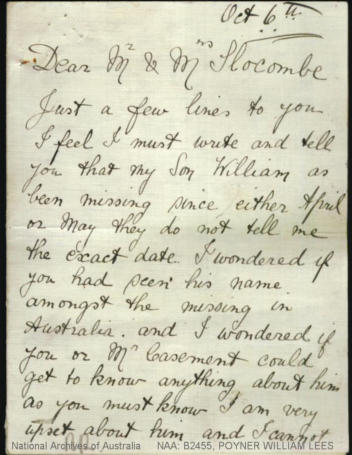 Oct 6th
Dear Mr & Mrs Slocombe
Just a few lines to you
I feel I must write and tell
you that my Son William as
been missing since either April
or May they do not tell me
the exact date. I wondered if
you had seen his name
amongst the missing in
Australia. and I wondered if
you or Mr Casement could
get to know anything about him
as you must know I am very
upset about him and I cannot
National Archives of Australia NAA: B2455, POYNER WILLIAM LEES